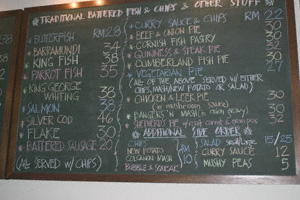 TRADITIONAL BATTERED FISH & CHIPS & OTHER STUFF
BUTTERFISH RM 28
BARRAMUNDI 34
KING FISH 38
PARROT FISH 35
KING GEORGE
WHITING 38
SALMON 38
SILVER COD 46
FLAKE 30
BATTERED SAUSAGE 20
(ALL SERVED W/ CHIPS)
CURRY SAUCE & CHIPS RM 22
BEEF & ONION PIE 30
CORNISH FISH PASTRY 30
GUINNESS & STEAK PIE 30
CUMBERLAND FISH PIE 30
VEGETARIAN PIE
(ALL OF THE ABOVE SERVED W/ EITHER
CHIPS, MASH/NEW POTATO OR SALAD)
CHICKEN & LEEK PIE 30
BANGERS 'N MASH 30
SHEPHERDS PIE 30
ADDITIONAL SIDE ORDER
CHIPS
NEW POTATO
COLCANNON MASH
BUBBLE & SQUEAK
RM 10
SALAD 15/25
CURRY SAUCE 12
MUSHY PEAS 5